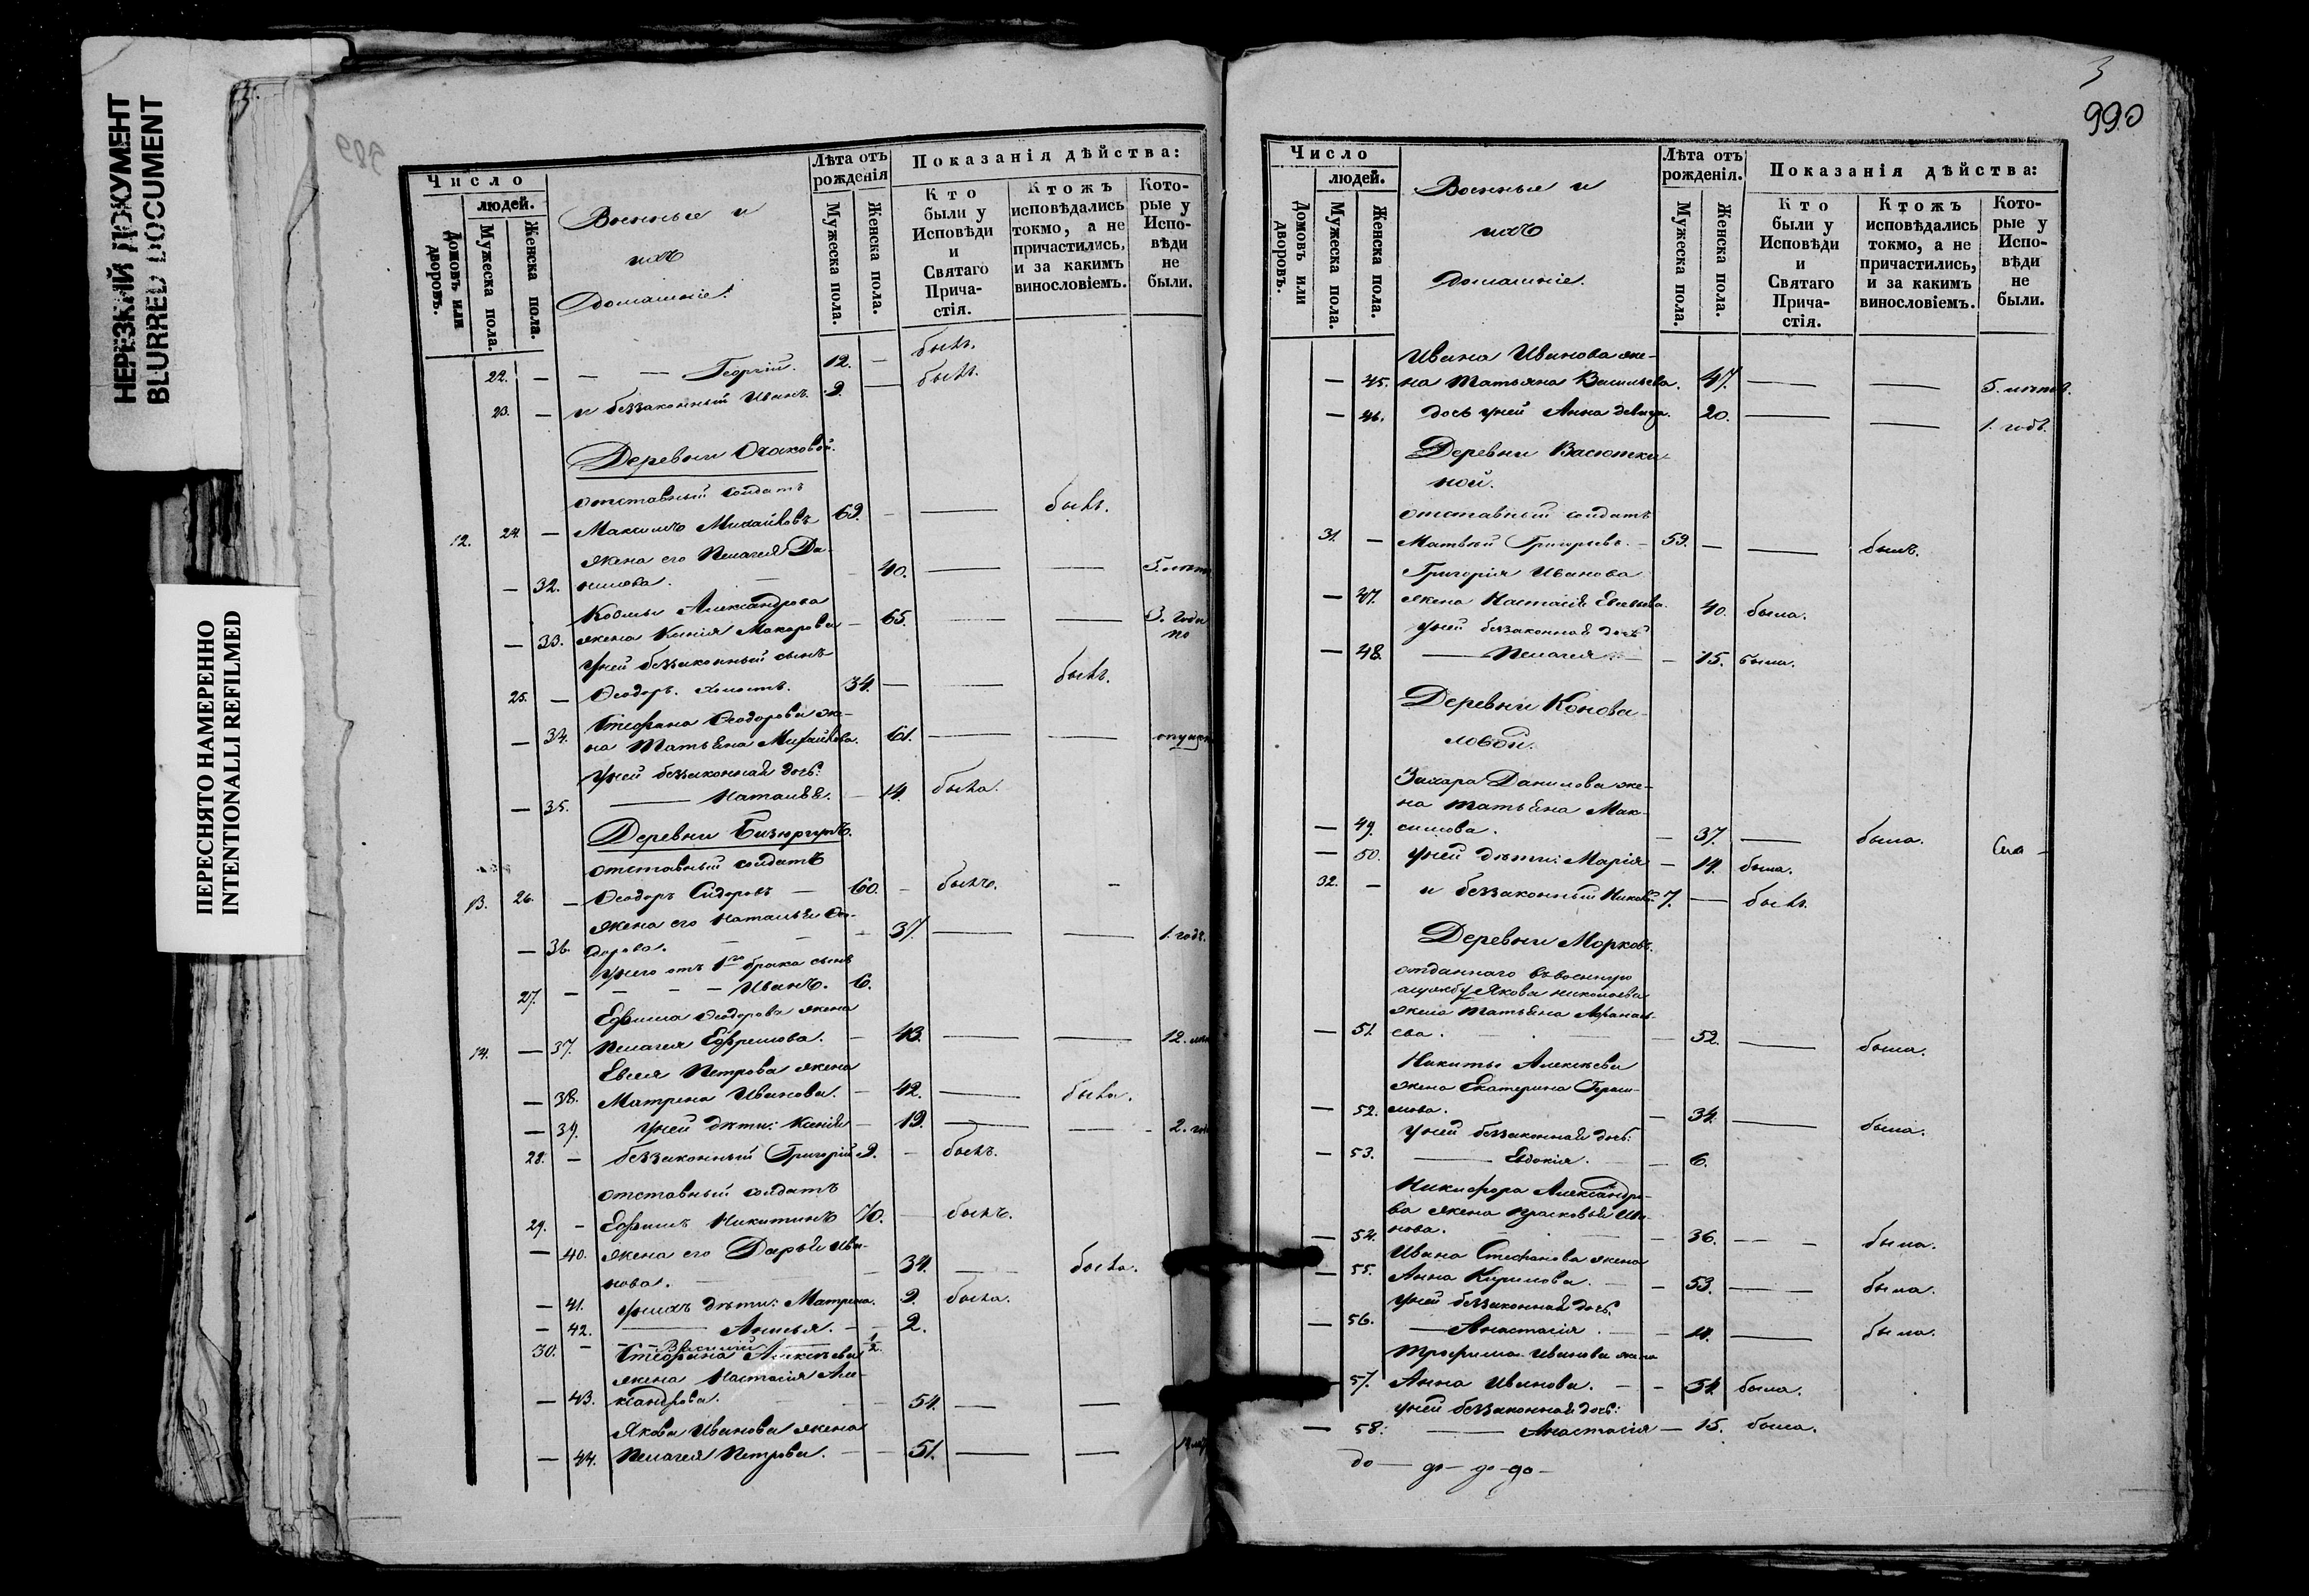 НЕРЕЗКИЙ ДОКУМЕНТ
BLURRED DOCUMENT
ПЕРЕСНЯТО НАМЕРЕННО
INTENTIONALLI REFILMED
989
Число
людей.
Домовъ или дворовъ.
Мужеска пола.
Женска пола.
Военные и
ихъ
домашніе.
Лѣта отъ рожденія
Мужеска пола.
Женска пола.
Показанія дѣйства:
Кто были у Исповѣди и Святаго Прича-стія.
Ктожъ исповѣдались токмо, а не причастились, и за какимъ винословіемъ.
Кото-рые у Испо-вѣди не были.
22. — — — Георгій. 12. — былъ.
23. — и беззаконный Иванъ. 9. — былъ.
Деревни Очаковой.
отставный солдатъ
12. 24. — Максимъ Михайловъ 69. — — былъ.
жена его Пелагея Да-
— 32. нилова. — 40. — — 5. лѣтъ
Козмы Александрова
— 33. жена Ксенія Макарова — 65. — — 3. года
по
у ней беззаконный сынъ
25. — Ѳеодоръ. холостъ. 34. — — былъ.
Стефана Ѳеодорова же-
— 34. на Татьяна Михайлова. 61. — —
у ней беззаконная дочь:
— 35. — Наталья. — 14. была.
Деревни
отставный солдатъ
13. 26. — Ѳеодоръ Сидоровъ — 60. — былъ. —
жена его Наталья Ѳео-
— 36. дорова. — — — 37. — — 1. годъ.
у него отъ 1го брака сынъ
27. — — — — Иванъ. 6.
Ефима Ѳеодорова жена
14. — 37. Пелагея Ефремова. — 43. — — 12.
Евсея Петрова жена
— 38. Матрена Иванова. — 42. — была.
— 39. у ней дѣти: Ксенія — 19. — — 2.
28. — беззаконный Григорій 9. — былъ.
отставный солдатъ
29. — Ефимъ Никитинъ 70. — былъ.
— 40. жена его Дарья Ива-
нова. — — 34. — была.
— 41. у нихъ дѣти: Матрена. 9. была.
— 42. — Анисья. — — 2.
30. — — — Василій — 1/2.
Стефана Алексѣева
жена Настасія Але-
— 43. ксандрова. — — — 54. — —
Якова Иванова жена
— 44. Пелагея Петрова. — — 51. — —
3
990
Число
людей.
Домовъ или дворовъ.
Мужеска пола.
Женска пола.
Военные и
ихъ
домашніе.
Лѣта отъ рожденія.
Мужеска пола.
Женска пола.
Показанія дѣйства:
Кто были у Исповѣди и Святаго Прича-стія.
Ктожъ исповѣдались токмо, а не причастились, и за какимъ винословіемъ.
Кото-рые у Испо-вѣди не были.
Ивана Иванова же-
— 45. на Татьяна Васильева. 47. — — 5. лѣтъ.
— 46. дочь у ней Анна девица. 20. — — 1. годъ.
Деревни Васютки-
ной.
отставный солдатъ
31. — Матвѣй Григорьевъ. — 59. — — былъ.
Григорія Иванова
— 47. жена Настасія Евсевьева. 40. была.
у ней беззаконная дочь
— 48. — Пелагея. — — 15. была.
Деревни Конова-
ловой.
Захара Данилова же-
на Татьяна Мак-
— 49. симова. — 37. — была.
— 50. у ней дѣти: Марія — 14. была.
32. — и беззаконный 7. — былъ.
Деревни Морковъ.
отданнаго въ военную
службу Якова Николаева
жена Татьяна Афанась-
— 51. ева. — — 52. — была.
Никиты Алексѣева
жена Екатерина Гераси-
— 52. мова. — 34. — была.
у ней беззаконная дочь:
— 53. — Евдокія. — — 6.
Никифора Александро-
ва жена Прасковья Ива-
— 54. нова. — — 36. — — была.
Ивана Стефанова жена
— 55. Анна Кирилова. — — 53. — была.
у ней беззаконная дочь.
— 56. — Анастасія. — — 11. — была.
Трофима Иванова жена
— 57. Анна Иванова. — — 54. была.
у ней беззаконная дочь:
— 58. — Анастасія — 15. была.